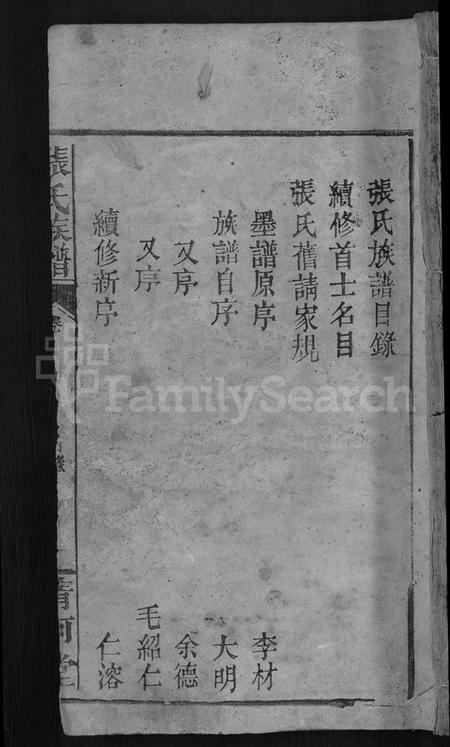 張氏族譜目錄
續修首士名目
張氏舊請家規
墨譜原序 李材
族譜自序 大明
又序 余德
又序 毛紹仁
續修新序 仁溶
張氏族譜
清河堂
FamilySearch